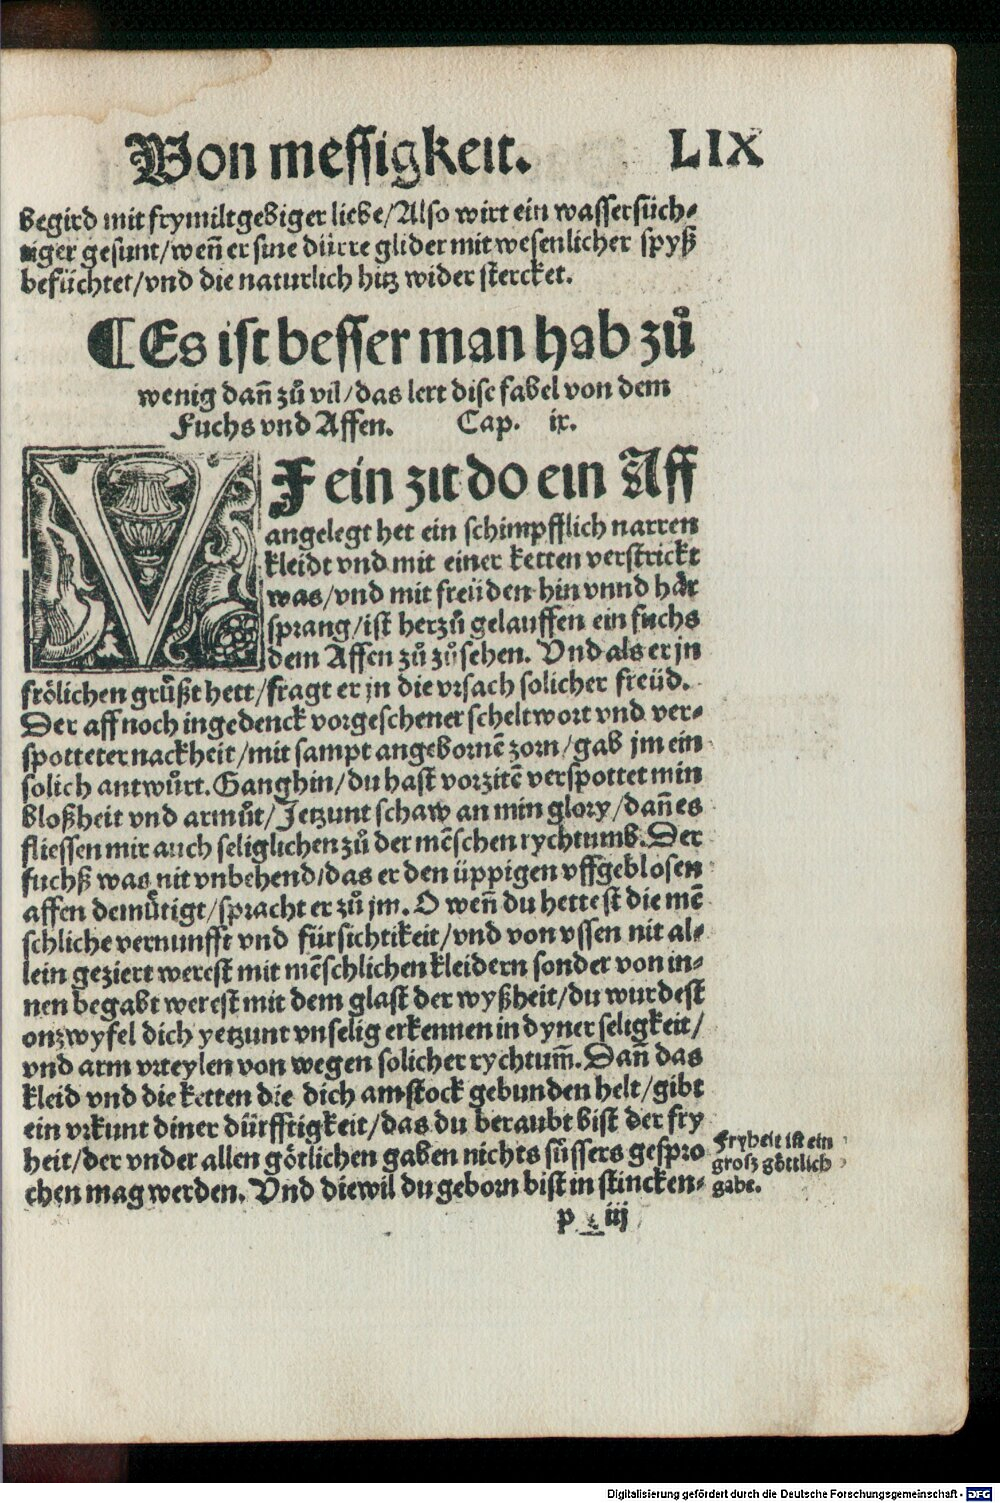 Von messigkeit. LIX
begird mit frymiltgebiger liebe/Also wirt ein wassersüch⸗
tiger gesunt/weñ er sine dürre glider mit wesenlicher spyß
befüchtet/vnd die naturlich hitz wider stercket.
¶Es ist besser man hab zů
wenig dañ zů vil/das lert dise fabel von dem
Fuchs vnd Affen. Cap. ix.
VF ein zit do ein Aff
angelegt het ein schimpfflich narren
kleidt vnd mit einer ketten verstrickt
was/vnd mit freüden hin vnnd här
sprang/ist herzů gelauffen ein fuchs
dem Affen zů zůsehen. Vnd als er jn
frölichen grůßt hett/fragt er jn die vrsach solicher freüd.
Der aff noch ingedenck vorgeschener scheltwort vnd ver⸗
spotteter nackheit/mit sampt angebornē zorn/gab jm ein
solich antwůrt. Ganghin/du hast vorzitē verspottet min
bloßheit vnd armůt/Jetzunt schaw an min glory/dañ es
fliessen mir auch seliglichen zů der mēschen rychtumb. Der
fuchß was nit vnbehend/das er den üppigen vffgeblosen
affen demůtigt/spracht er zů jm. O weñ du hettest die mē
schliche vernunfft vnd fürsichtikeit/vnd von vssen nit al⸗
lein geziert werest mit mēschlichen kleidern sonder von in⸗
nen begabt werest mit dem glast der wyßheit/du wurdest
onzwyfel dich yetzunt vnselig erkennen in dyner seligkeit/
vnd arm vrteylen von wegen solicher rychtum̃. Dañ das
kleid vnd die ketten die dich am stock gebunden helt/gibt
ein vrkunt diner dürfftigkeit/das du beraubt bist der fry
heit/der vnder allen götlichen gaben nichts süssers gespro
chen mag werden. Vnd diewil du geborn bist in stincken⸗
Fryheit ist ein
grosz göttlich
gabe.
p iij
Digitalisierung gefördert durch die Deutsche Forschungsgemeinschaft - DFG